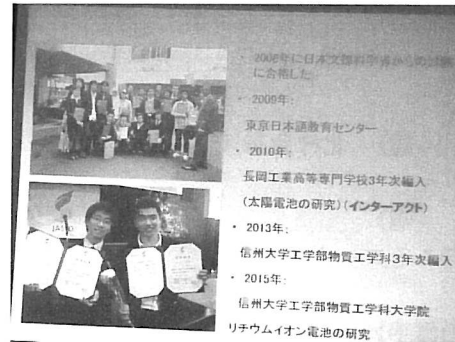 ・2008年に日本文部科学省からの試験
に合格した
・2009年:
東京日本語教育センター
・2010年:
長岡工業高等専門学校3年次編入
(太陽電池の研究)(インターアクト)
・2013年:
信州大学工学部物質工学科3年次編入
・2015年:
信州大学工学部物質工学科大学院
リチウムイオン電池の研究
JASSO